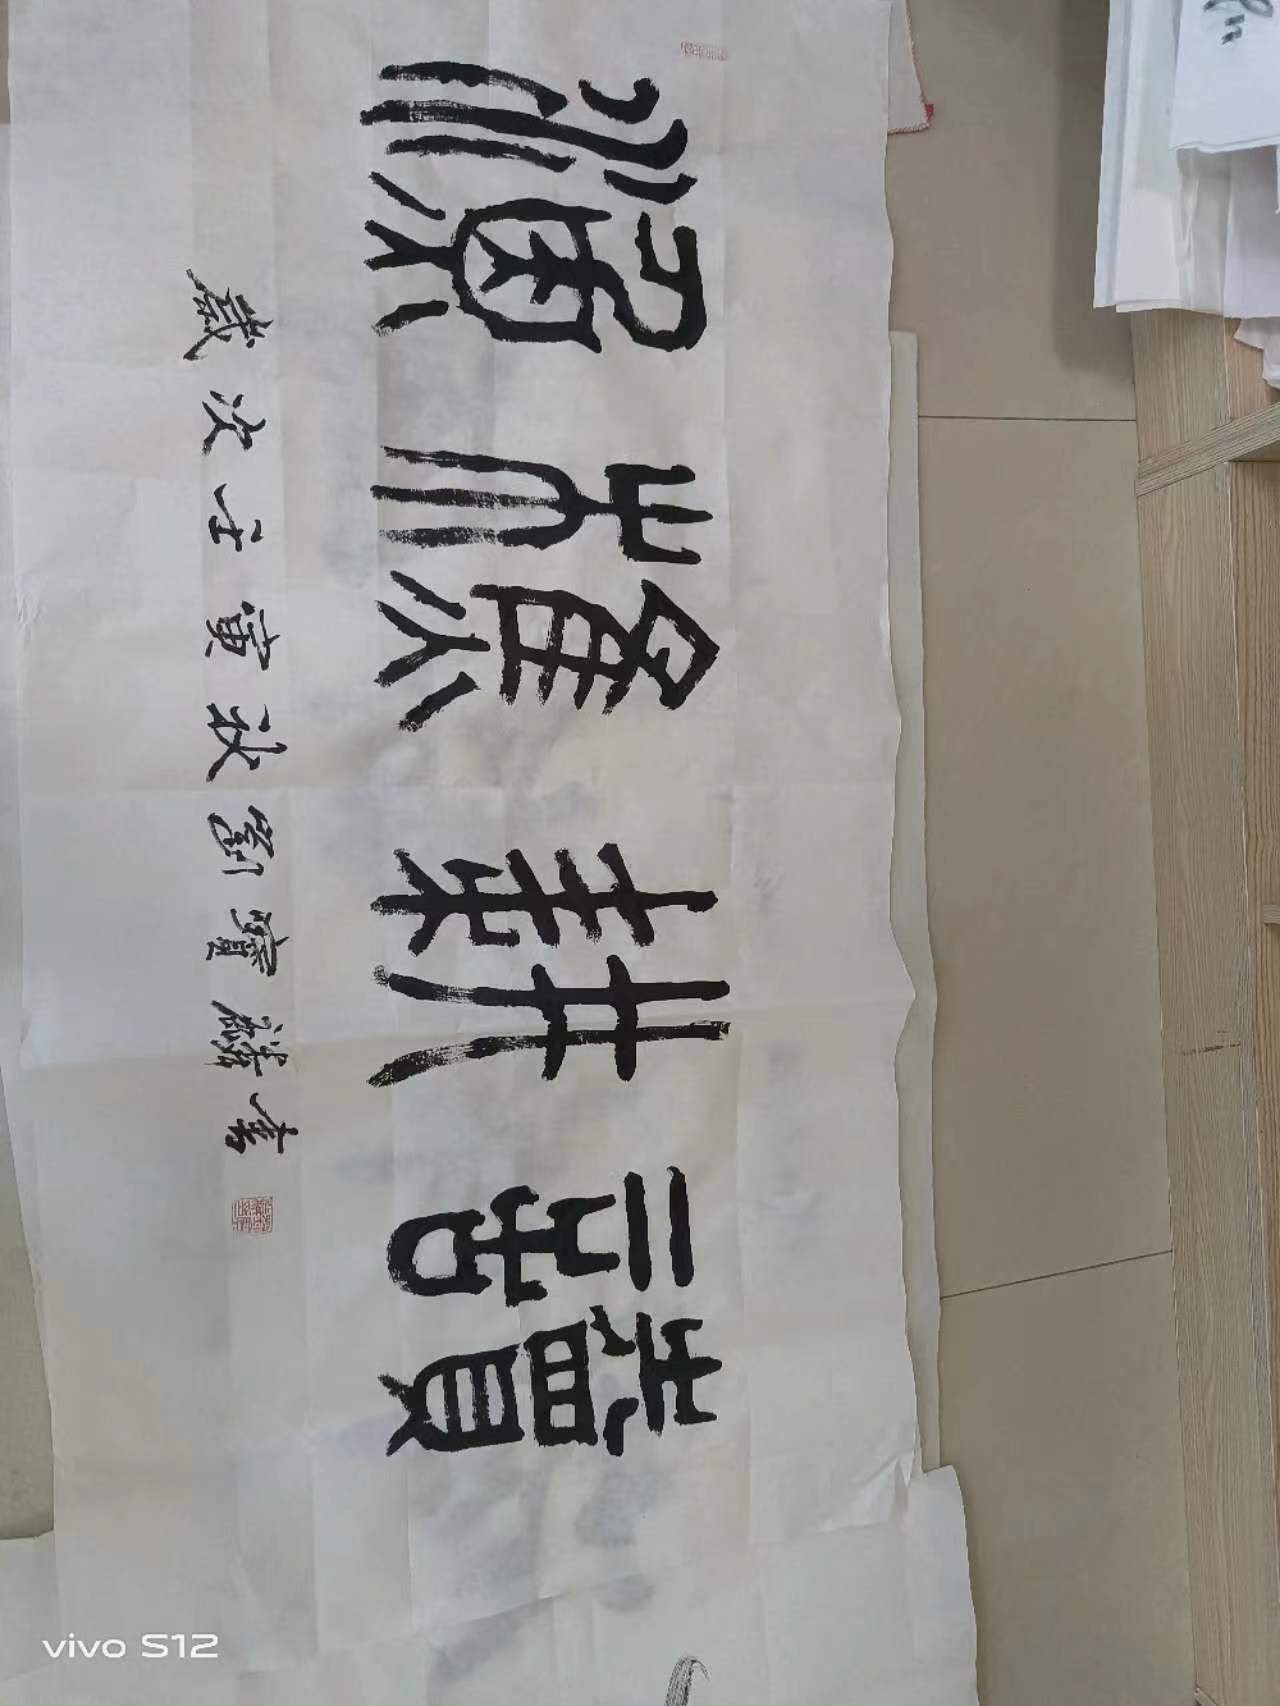 漁樵耕讀
歲次壬寅秋劉寶麟書
vivo S12